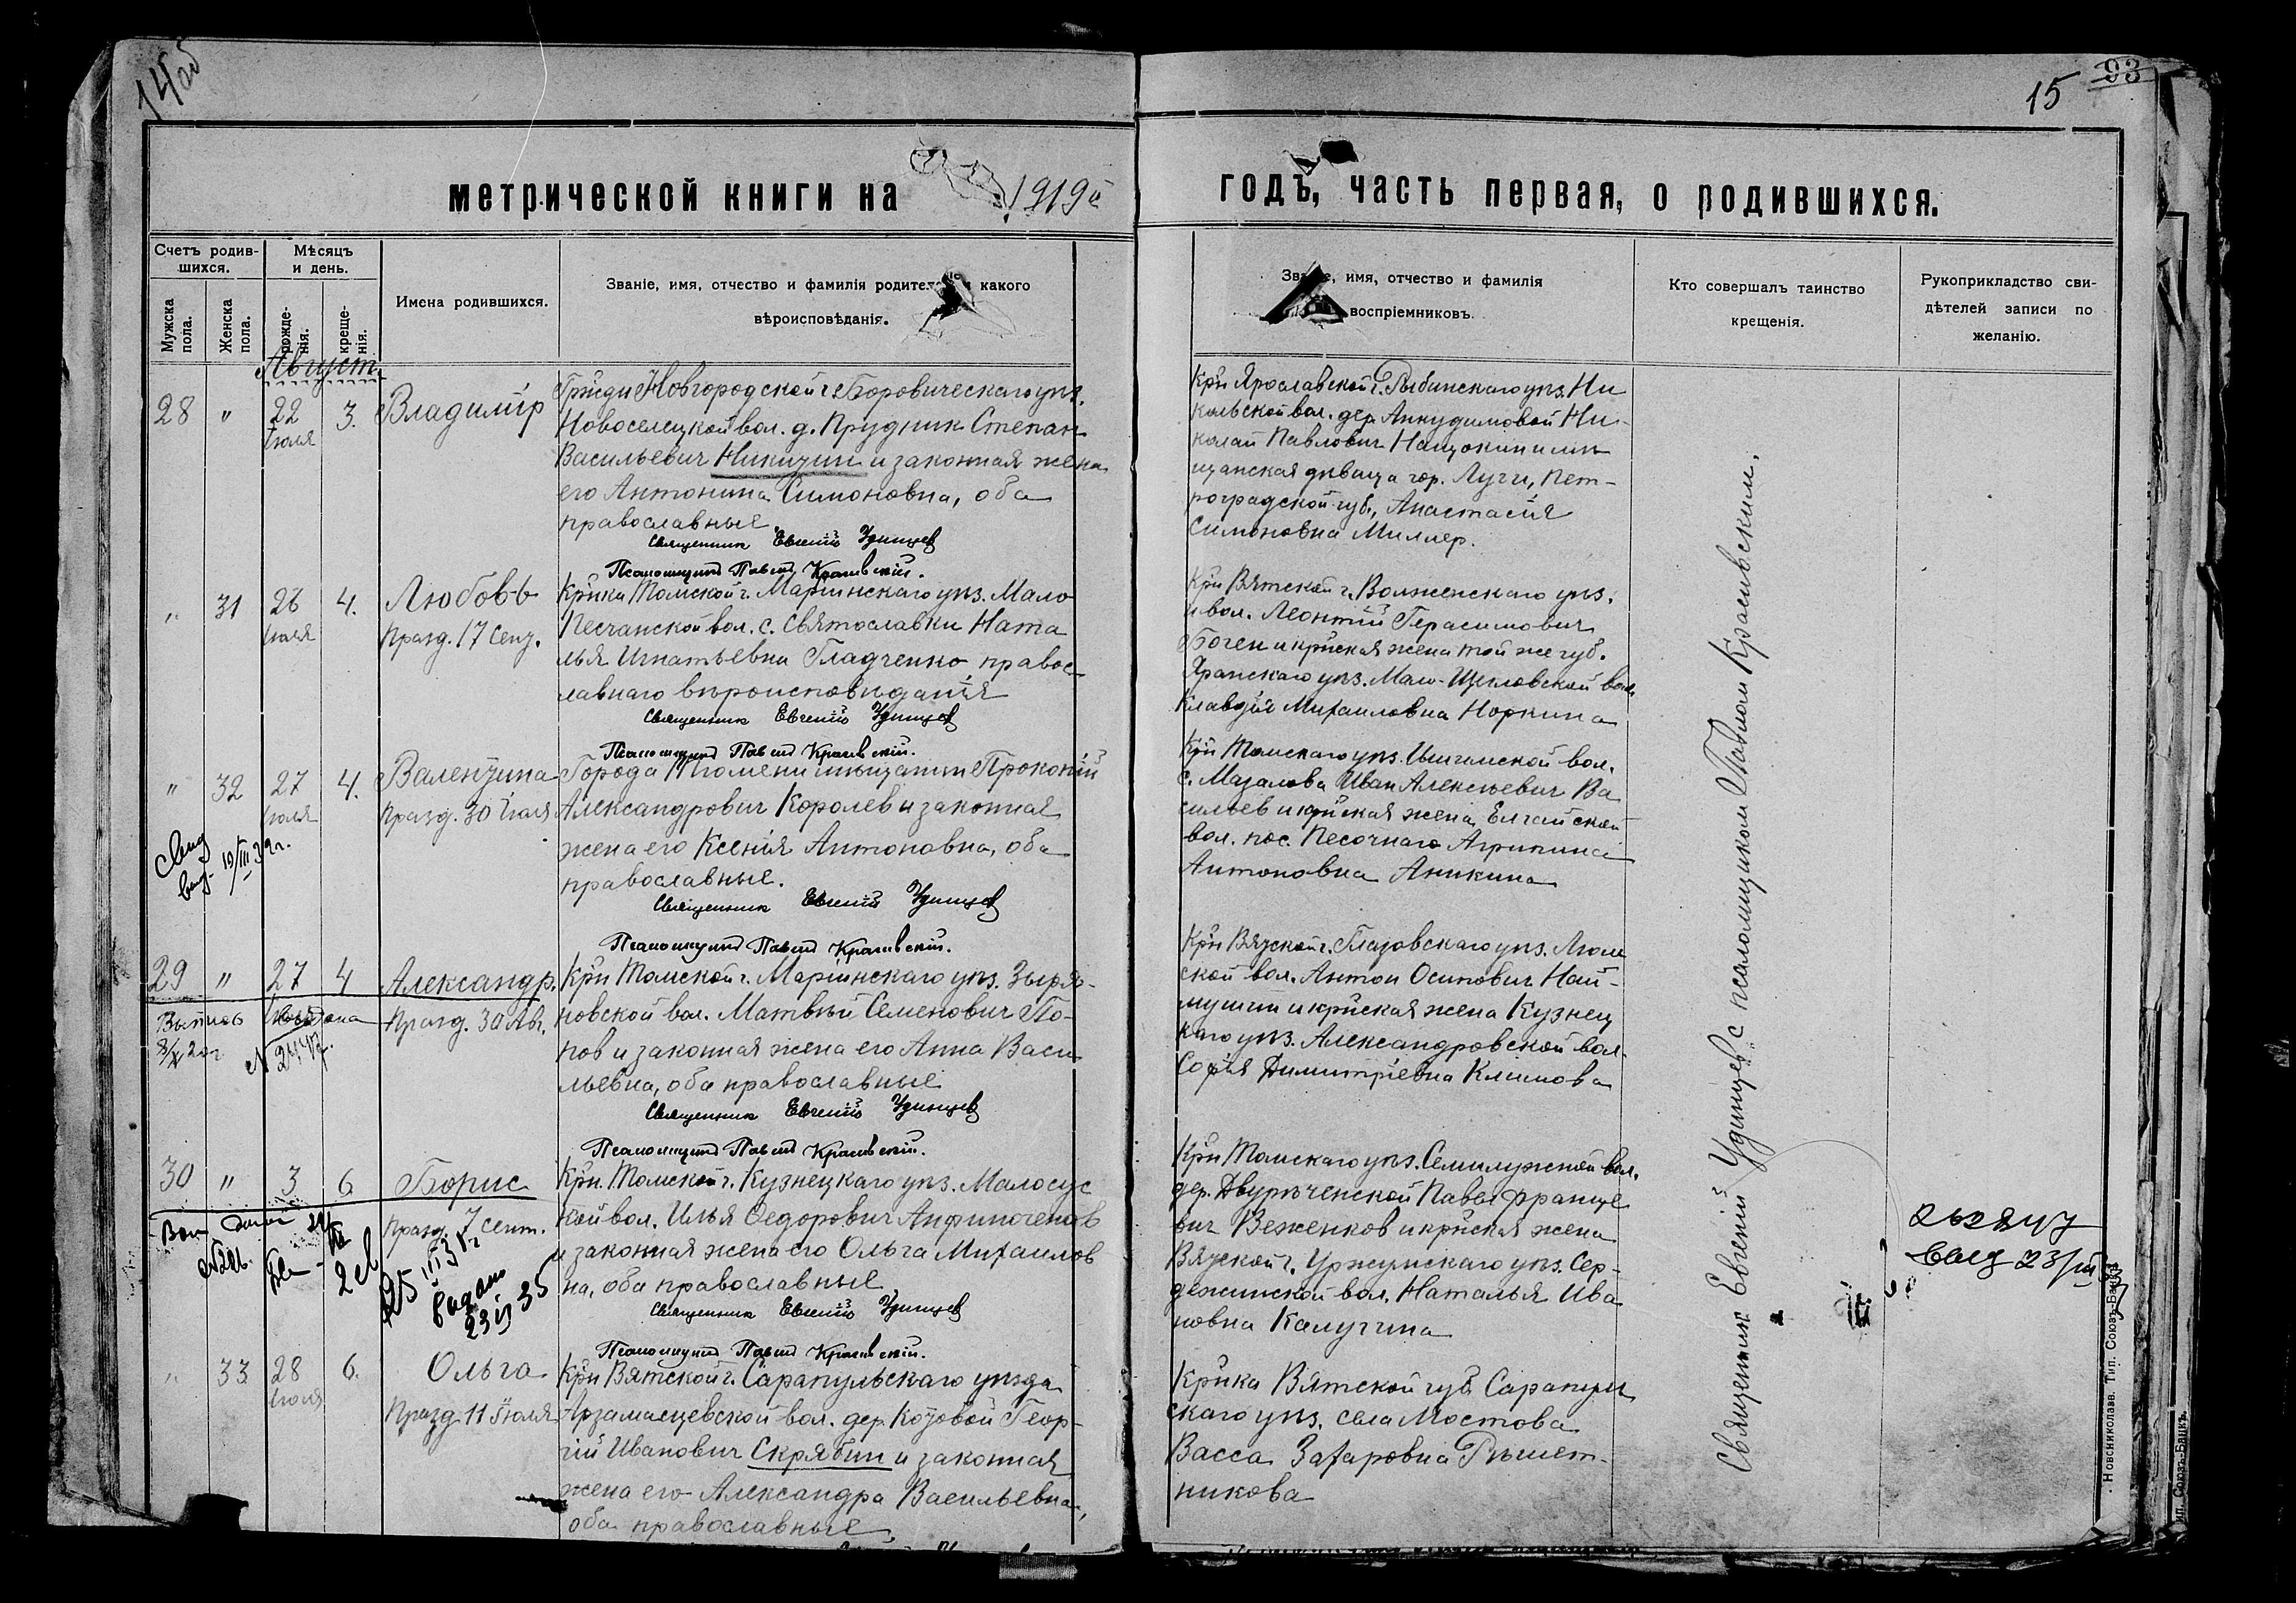 14об
15
93
метрической книги на 1919й
годъ, часть первая, о родившихся.
Счетъ родив-
шихся.
Мѣсяцъ
и день.
Мужска
пола.
Женска
пола.
рожде-
нія.
креще-
нія.
Имена родившихся.
Званіе, имя, отчество и фамилія родителей какого
вѣроисповѣданія.
имя, отчество и фамилія
воспріемниковъ.
Кто совершалъ таинство
крещенія.
Рукоприкладство сви-
дѣтелей записи по
желанію.
Август.
28 " 22 3. Владимір
Іюля
Новгородской г. Боровическаго уѣз.
Новоселецкой вол. д. Прудник Степан
Васильевич и законная жена
его Антонина Симоновна, оба
православные
Священник Евгеній Удинцев
Псаломщик Павел Красивскій.
Крн Ярославской г. Рыбинскаго уѣз. Ни
кольской вол. дер. Анкудимовой Ни-
колай Павлович Нащокин и мѣ
щанская дѣвица гор. Луги, Пет-
роградской губ., Анастасія
Симоновна Миллер.
" 31 26 4. Любовь
Іюля
Празд. 17 Сент.
Крнка Томской г. Маріинскаго уѣз. Мало
Песчанской вол. с. Святославки Ната
лья Игнатьевна Гладченко, правос-
лавнаго вѣроисповѣданія
Священник Евгеній Удинцев
Псаломщик Павел Красивскій.
Крн Вятской г. уѣз.
и вол. Леонтій Герасимович
и крнская жена той же губ.
Яранскаго уѣз. Мало-Щегловской вол.
Клавдія Михаиловна Норкина
" 32 27 4. Валентина
Іюля
Празд. 30 Іюля
Города Тюмени мѣщанин Прокопій
Александрович Королев и законная
жена его Ксенія Антоновна, оба
православные.
Священник Евгеній Удинцев
Псаломщик Павел Красивскій.
Крн Томскаго уѣз. Ишимской вол.
с. Мазалова Иван Алексѣевич Ва
сильев и крнская жена Елгайской
вол. пос. Песочнаго Агрипина
Антоновна Аникина
29 " 27 4 Александр.
Празд. 30 Авг.
Крн Томской г. Маріинскаго уѣз. Зыря-
новской вол. Матвѣй Семенович По-
пов и законная жена его Анна Васи
льевна, оба православные
Священник Евгеній Удинцев
Псаломщик Павел Красивскій.
Крн Вятской г. Глазовскаго уѣз. Люм
ской вол. Антон Осипович Най-
мушин и крнская жена Кузнец
каго уѣз. Александровской вол.
Софія Димитріевна Климова
30 " 3 6 Борис
Празд. 7 Сент.
Крн. Томской г. Кузнецкаго уѣз. Малосус
кой вол. Илья Федорович Анфиногенов
и законная жена его Ольга Михаилов
на, оба православные
Священник Евгеній Удинцев
Псаломщик Павел Красивскій.
Крн Томскаго уѣз. Семилужной вол.
дер. Двурѣченской Павел Францо
вич Веженков и крнская жена
Вятской г. Уржумскаго уѣз. Сер-
дежинской вол. Наталья Ива
новна Калугина
" 33 28 6. Ольга
Іюля
Празд. 11 Іюля
Крн Вятской г. Сарапульскаго уѣзда
Арзамасцевской вол. дер. Козовой Геор-
гій Иванович Скрябин и законная
жена его Александра Васильевна,
оба православные
Крнка Вятской губ. Сарапуль
скаго уѣз. села Мостова
Васса Захаровна Рѣшет-
никова
Священник Евгеній Удинцев с псаломщиком Павлом Красивским.
Новониколаев. Тип. Союз-Банкъ